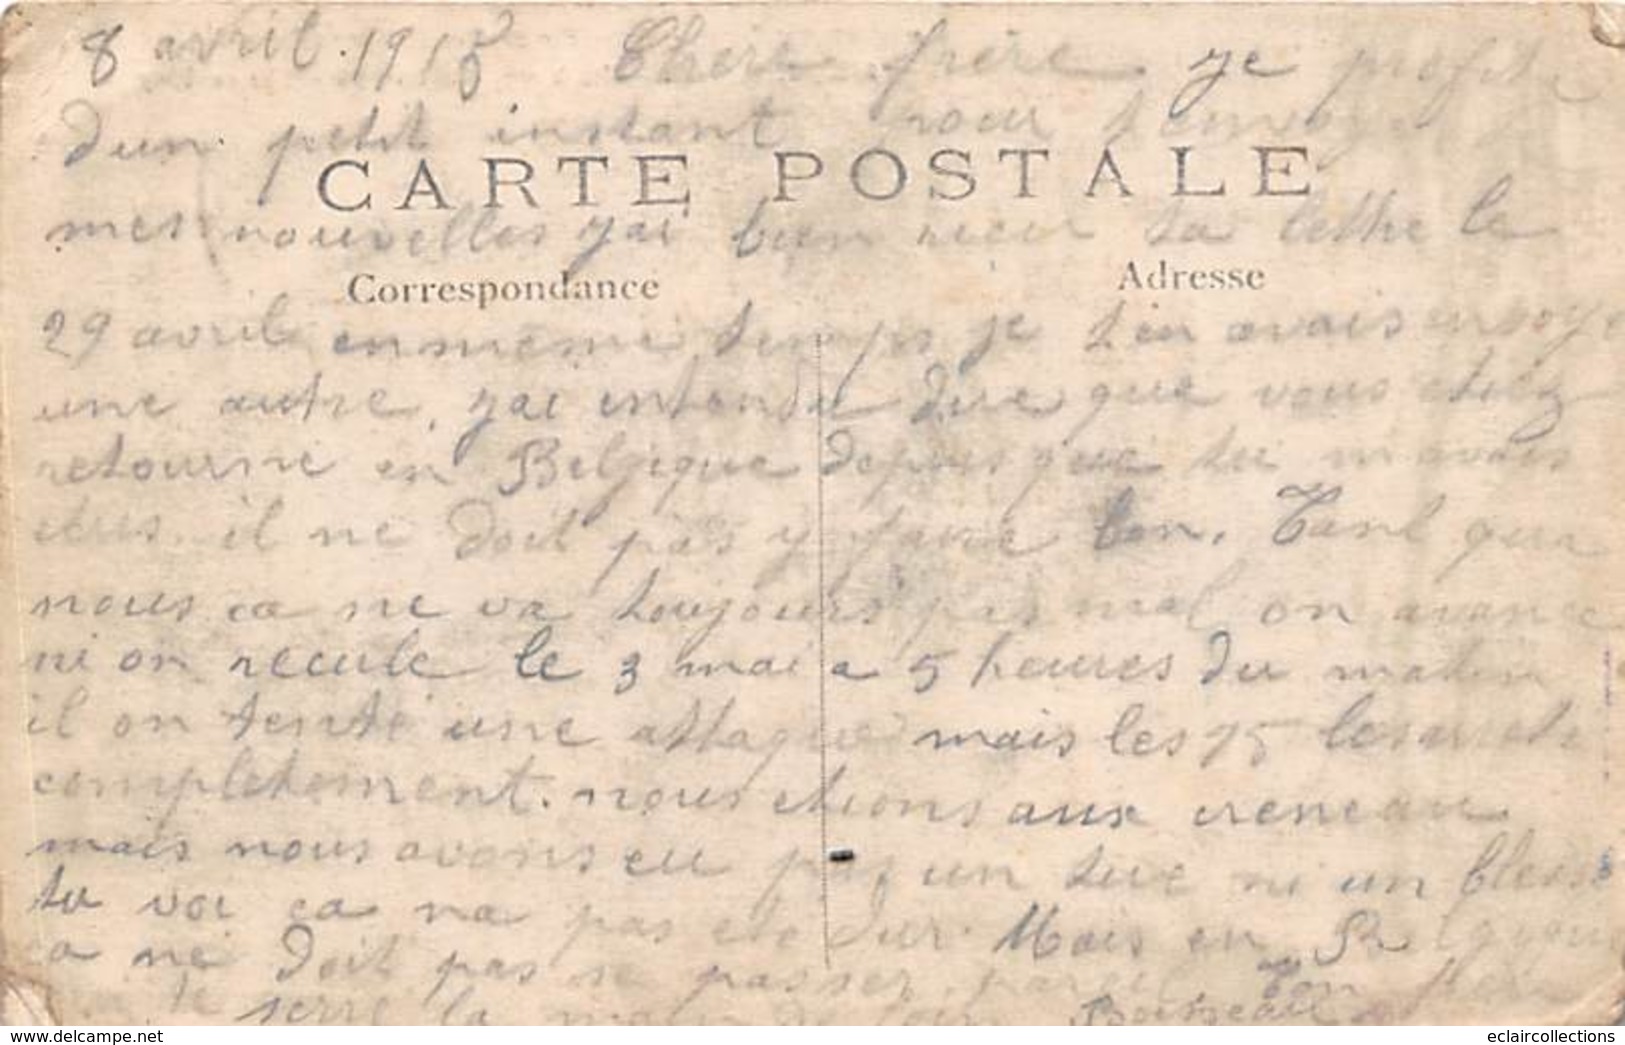 8 avril 1915 Chere frère je profite
dun petit instant pour t'envoyer
CARTE POSTALE
mes nouvelles jai bien recu ta lettre le
Correspondance Adresse
29 avril en meme temps je t'en avais envoye
une autre, jai entendu dire que vous etiez
retourne en Belgique depuis que tu m'avais
il ne doit pas y faire bon. Tant qua
nous ca ne va toujours pas mal on avance
ni on recule le 3 mai a 5 heures du matin
il on tente une attaque mais les 75 les
completement. nous etions aux creneau
mais nous avons eu pas un tue ni un blesse
tu voi ca na pas ete dur. Mais en Belgique
ca ne doit pas se passer pareil Ton frere
te serre la main de loin Boisseau
delcampe.net
eclaircollections